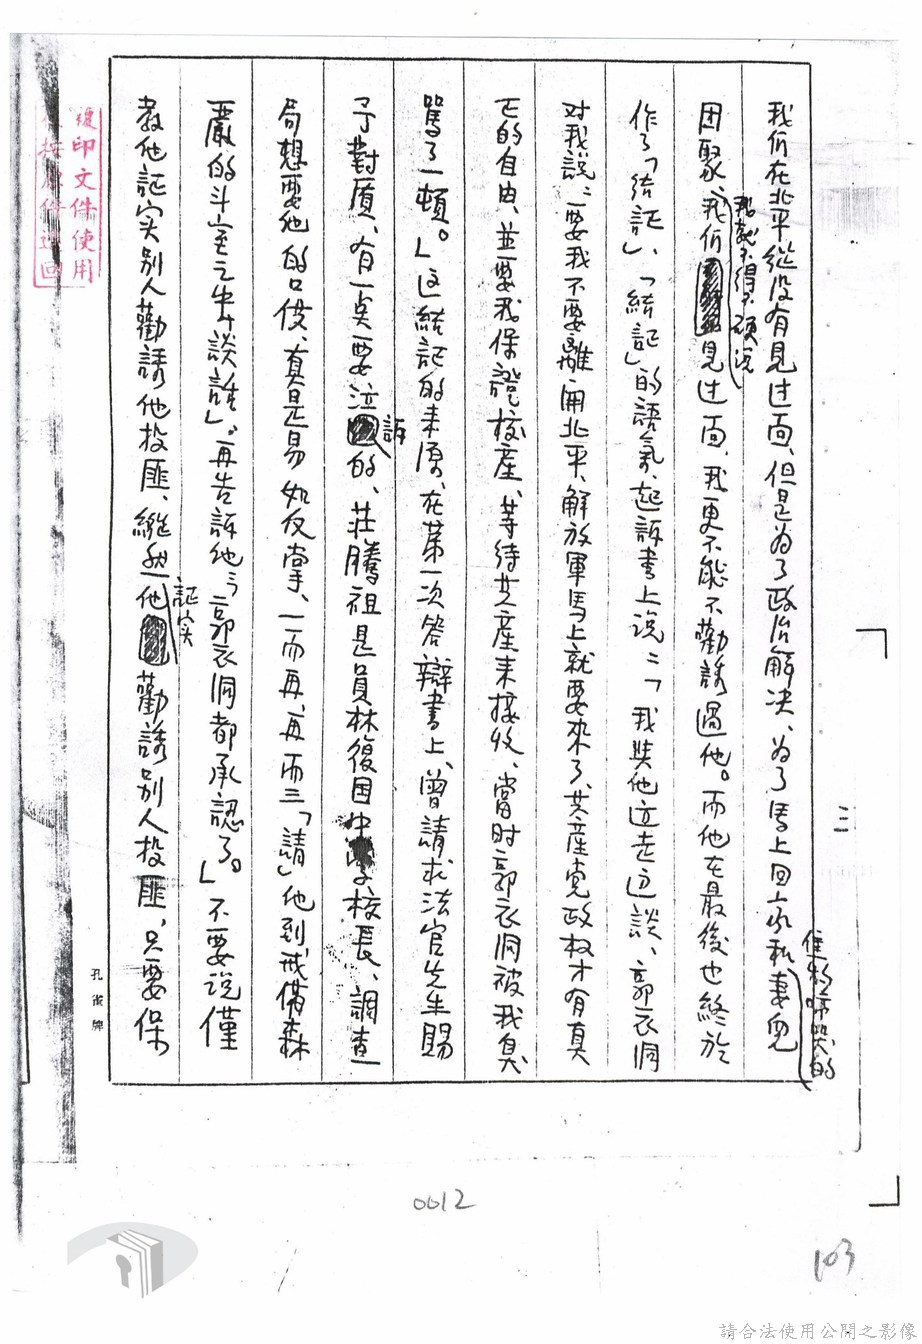 三
我們在北平從沒有見过面、但是为了政治解决、为了馬上回永和妻兒
焦盼啼哭的
团聚、我们見过面、我更不能不勸誘過他。而他在最後也終於
我就不得不硬说
作了「結証」、「結証」的語氣、起訴書上说：「我與他边走边談、郭衣洞
对我說：要我不要離開北平、解放軍馬上就要來了、共産党政权才有真
正的自由、並要我保證校産、等待共産来接收、當时郭衣洞被我臭
罵了一頓。」这結証的来源、在第一次答辯書上、曾請求法官先生賜
予對质、有一点要泣訴的、莊騰祖是員林復国中學校長、調查
局想要他的口供、真是易如反掌、一而再、再而三「請」他到戒備森
嚴的斗室之中「談話」。再告訴他：「郭衣洞都承認了。」不要说僅
教他証实别人勸誘他投匪、縱然他勸誘别人投匪、只要保
証实
孔雀牌
複印文件使用
0012
103
請合法使用公開之影像